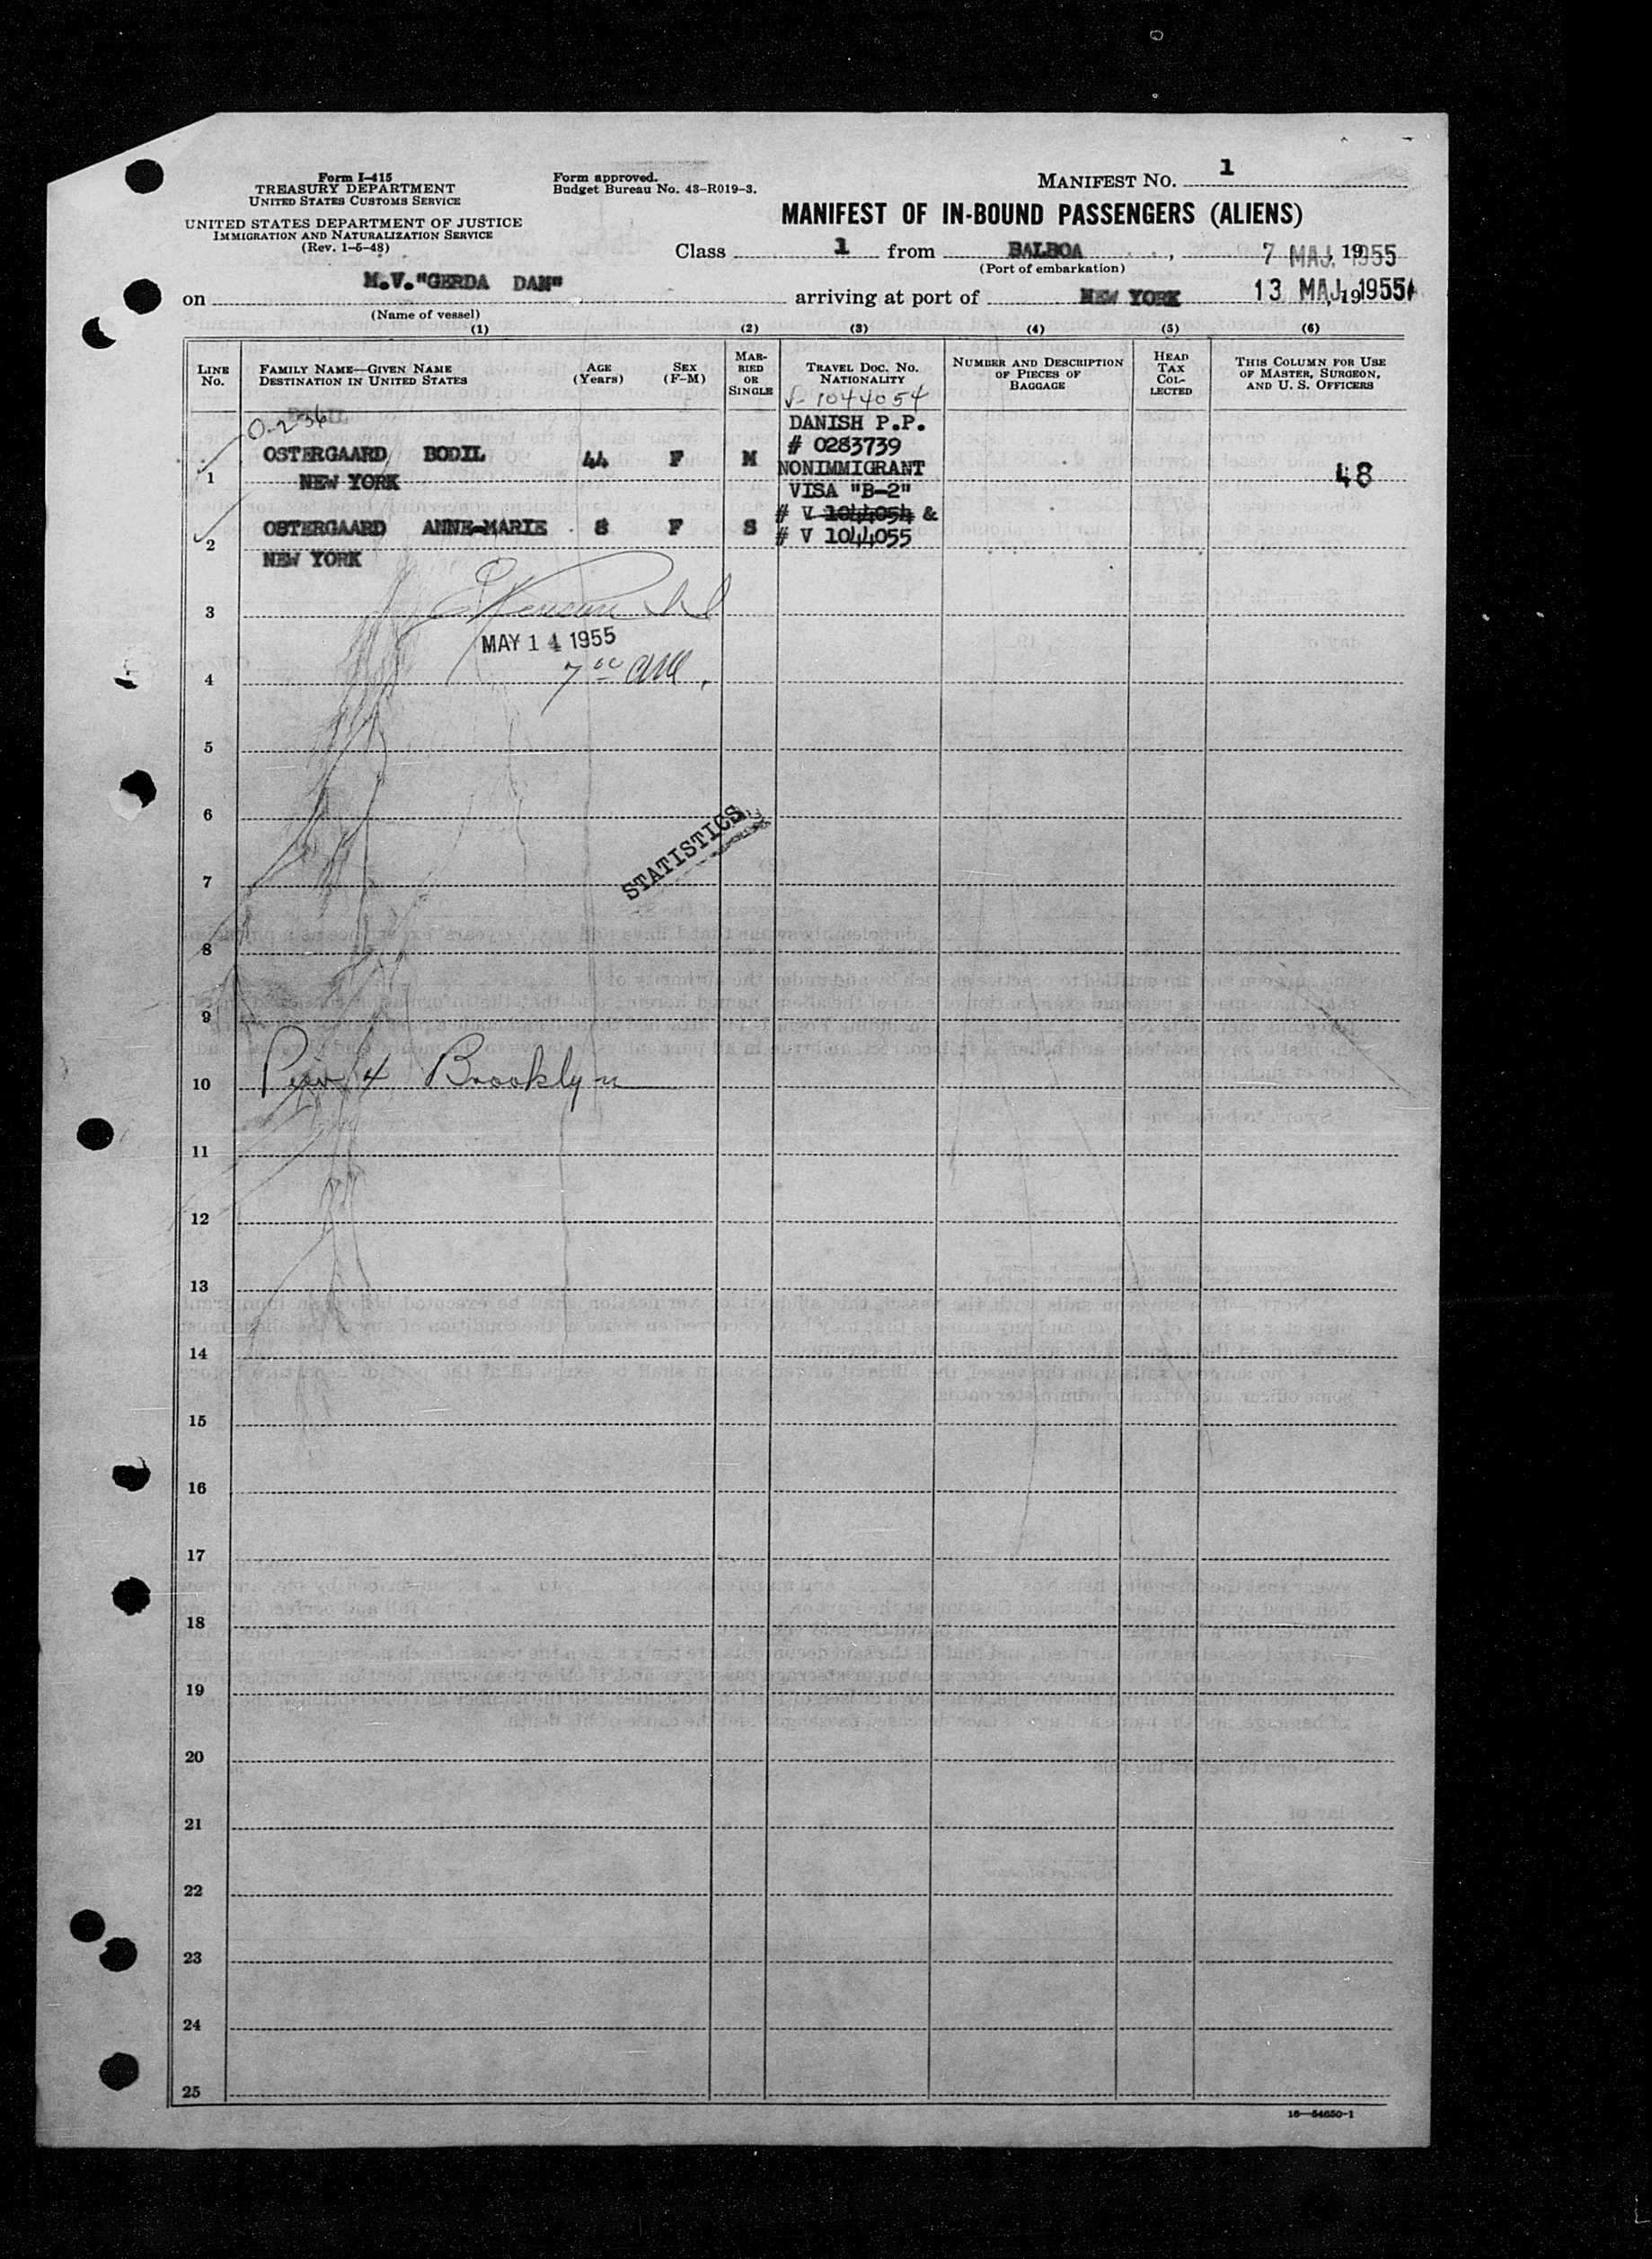 Form I-415
TREASURY DEPARTMENT
UNITED STATES CUSTOMS SERVICE
UNITED STATES DEPARTMENT OF JUSTICE
IMMIGRATION AND NATURALIZATION SERVICE
(Rev. 1-5-48)
Form approved.
Budget Bureau No. 43-R019-3.
MANIFEST NO. 1
MANIFEST OF IN-BOUND PASSENGERS (ALIENS)
Class 1 from BALBOA, 7 MAJ. 1955
(Port of embarkation)
on M.V. "GERDA DAN" arriving at port of NEW YORK 13 MAJ. 1955
(Name of vessel)
(1) (2) (3) (4) (5) (6)
LINE No.
FAMILY NAME—GIVEN NAME
DESTINATION IN UNITED STATES
AGE (Years)
SEX (F-M)
MARRIED OR SINGLE
TRAVEL DOC. NO.
NATIONALITY
NUMBER AND DESCRIPTION OF PIECES OF BAGGAGE
HEAD TAX COLLECTED
THIS COLUMN FOR USE OF MASTER, SURGEON, AND U. S. OFFICERS
V-1044054
0-2-36
DANISH P.P.
# 0283739
1 OSTERGAARD BODIL 44 F M
NEW YORK
NONIMMIGRANT
VISA "B-2"
48
# V 1044054 &
2 OSTERGAARD ANNE-MARIE 8 F S # V 1044055
NEW YORK
3
MAY 14 1955
7 00 AM.
4
5
6
STATISTICS
7
8
9
10 Pier 4 Brooklyn
11
12
13
14
15
16
17
18
19
20
21
22
23
24
25
16—54650-1